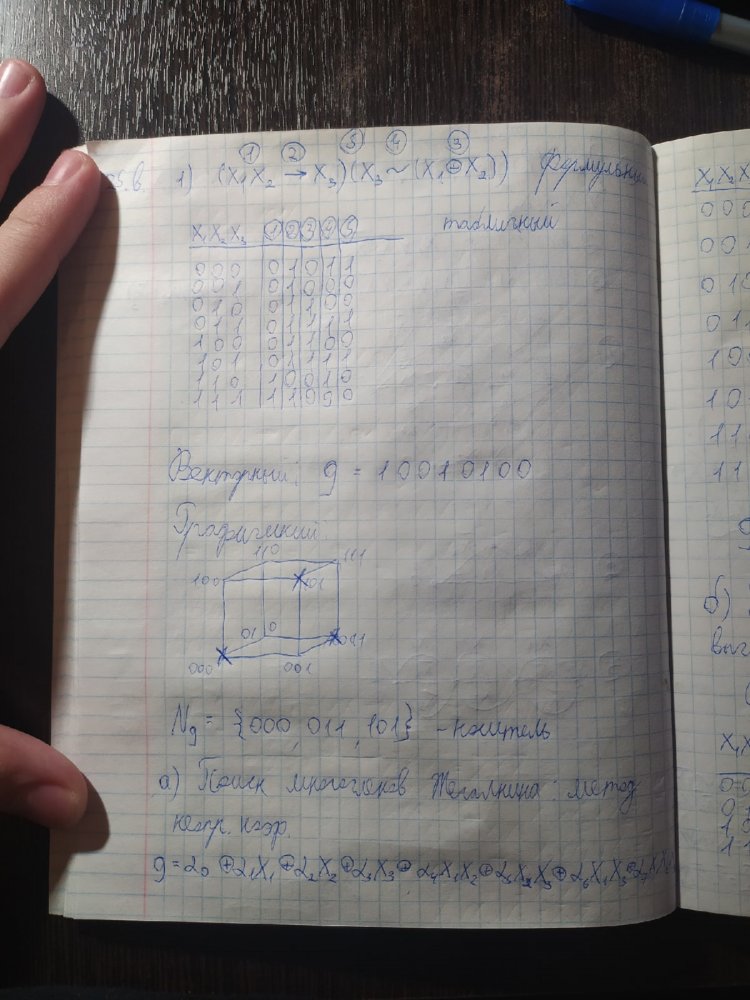 ① ② ⑤ ④ ③
1) (X₁X₂ → X₃)(X₃ ~ (X₁⊕X₂)) формульный
табличный
X₁ X₂ X₃ ① ② ③ ④ ⑤
0 0 0 0 1 0 1 1
0 0 1 0 1 0 0 0
0 1 0 0 1 1 0 0
0 1 1 0 1 1 1 1
1 0 0 0 1 1 0 0
1 0 1 0 1 1 1 1
1 1 0 1 0 0 1 0
1 1 1 1 1 0 0 0
Векторный: g = 10010100
Графический
110 111
100 101
010 011
000 001
Ng = {000, 011, 101} - носитель
а) Поиск многочленов Жегалкина: метод
неопр. коэф.
g = α₀ ⊕ α₁X₁ ⊕ α₂X₂ ⊕ α₃X₃ ⊕ α₄X₁X₂ ⊕ α₅X₂X₃ ⊕ α₆X₁X₃ ⊕ α₇
X₁ X₂ X
0 0 0
0 0
0 1
0 1
1 0
1 0
1 1
1 1
g
б)
выч
(
X₁X
0 0
0
1
1